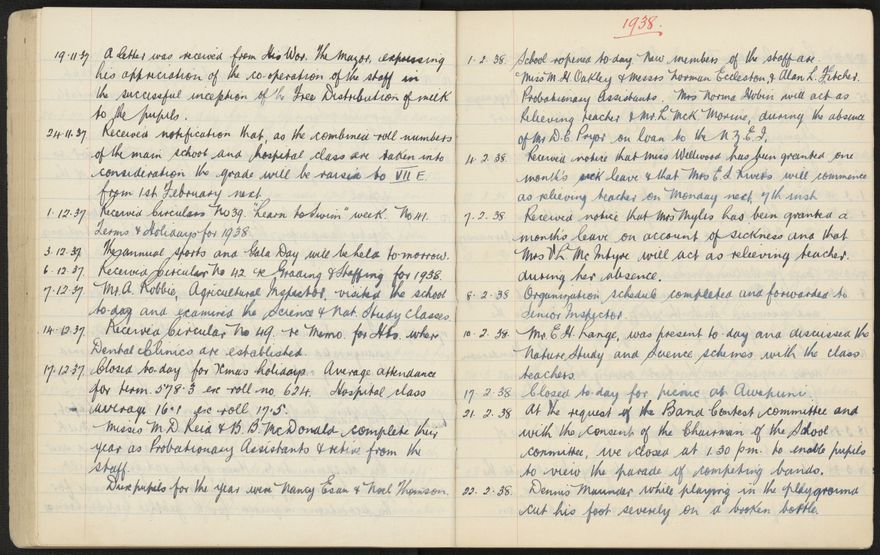 19.11.37 A letter was received from His Wor. The Mayor, expressing
his appreciation of the co-operation of the staff in
the successful inception of the Free Distribution of milk
to the pupils.
24.11.37 Received notification that, as the combined roll numbers
of the main school and hospital class are taken into
consideration the grade will be raised to VII E.
from 1st February next
1.12.37 Received Circulars No 39. "Learn to Swim" week. No 41.
Terms & Holidays for 1938.
3.12.37 The annual sports and Gala Day will be held to-morrow.
6.12.37 Received Circular No 42 re Grading & Staffing for 1938.
7.12.37 Mr. A. Robbie, Agricultural Inspector, visited the school
to-day and examined the Science & Nat. Study Classes.
14.12.37 Received Circular No 49. re Memo. for Hrs. where
Dental Clinics are established
17.12.37 Closed to-day for Xmas holidays. Average attendance
for term. 578.3 ex roll no. 624. Hospital class
average 16.1 ex roll 17.5.
Misses M. D. Reid & B. B. McDonald complete their
year as Probationary Assistants & retire from the
staff.
Dux pupils for the year were Nancy Esau & Noel Thomson.
1938.
1.2.38. School reopened to-day New members of the staff are
Miss M. H. Oakley & Messrs Norman Eccleston, & Alan L. Fitcher.
Probationary Assistants. Mrs Norma Hobin will act as
Relieving teacher & Mr. L. McK. Morine, during the absence
of Mr D. C. Pryor on loan to the N.Z.E.I.
4.2.38. Received notice that Miss Wellwood has been granted one
month's sick leave & that Mrs E. d. Rivers will commence
as relieving teacher on Monday next, 7th inst
7.2.38 Received notice that Mrs Myles has been granted a
months leave on account of sickness and that
Mrs V. L. McIntyre will act as relieving teacher.
during her absence.
8.2.38 Organisation schedule completed and forwarded to
Senior Inspector.
10.2.38. Mr. E. H. Lange, was present to-day and discussed the
Nature Study and Science schemes with the class
teachers.
17.2.38 Closed to-day for picnic at Awapuni.
21.2.38 At the request of the Band Contest committee and
with the consent of the Chairman of the School
committee, we closed at 1.30 pm. to enable pupils
to view the parade of competing bands.
22.2.38. Dennis Maunder while playing in the playground
cut his foot severely on a broken bottle.